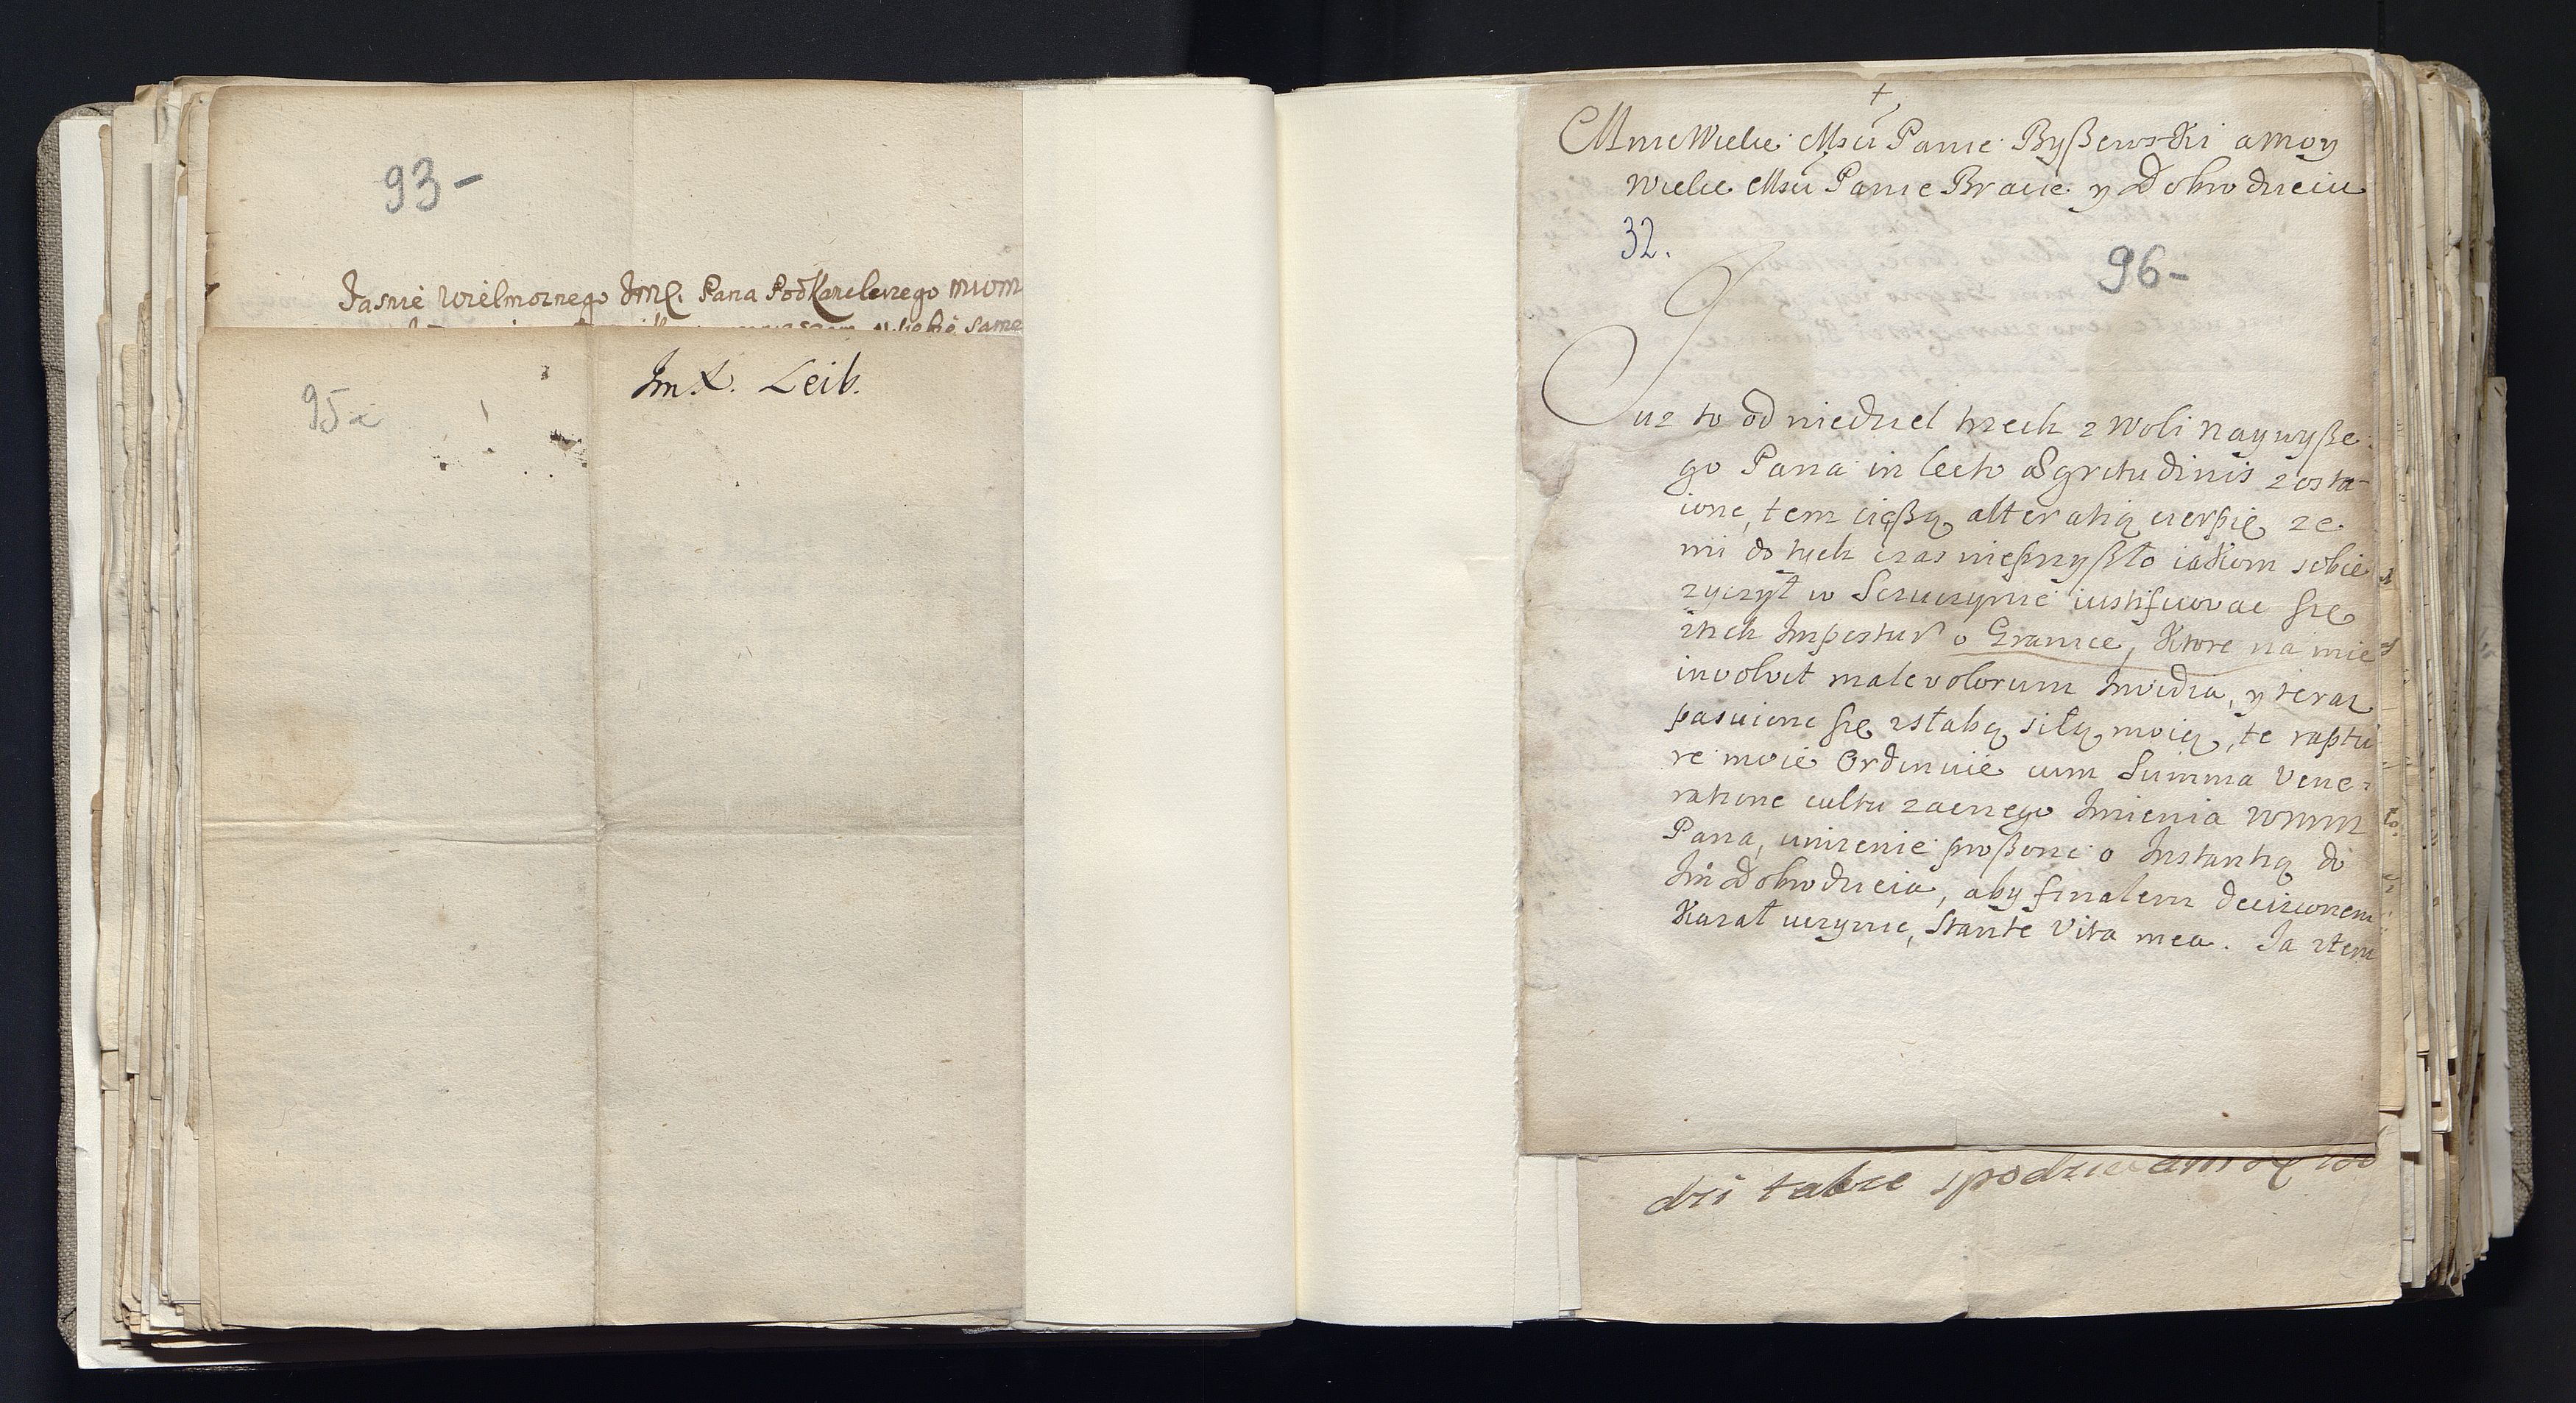 93-
Jasnie Wielmoznego JmP. Pana PodKanclerzego mom
siebie same
95a
JmX. Leib.
+
Mnie Wielce Mści Panie Byßewski a moy
Wielce Mści Panie Bracie y Dobrodzieiu
32.
96-
Juz to od niedziel trzech z woli naywyße-
go Pana in lecto ægritudinis zosta-
iąc, tem cięßą alteratią cierpię ze
mi do tych czas nieprzyßło iakom sobie
zyczył w Szczuczynie iustificowac się
ztych Impostur o Granice, Ktore na mie
involvit malevolorum Invidia, y teraz
pasuiąc się zsłabą siłą moią, te raptu
re moie Ordinuie cum Summa Vene-
ratione cultu zacnego Imienia WMM
Pana, unizenie proßąc o Instantią do
Jm Dobrodzieia, aby finalem decisionem
Kazał uczynic, Stante Vita mea. Ja ztem
dzi takze spodziewam się